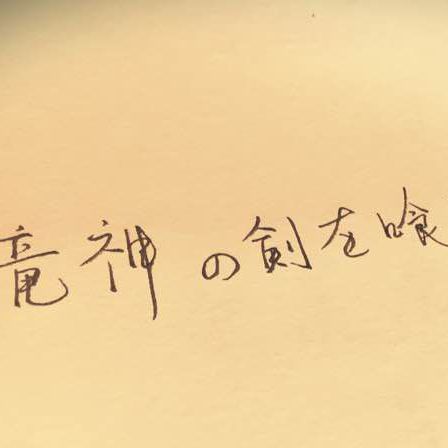 竜神の剣を喰